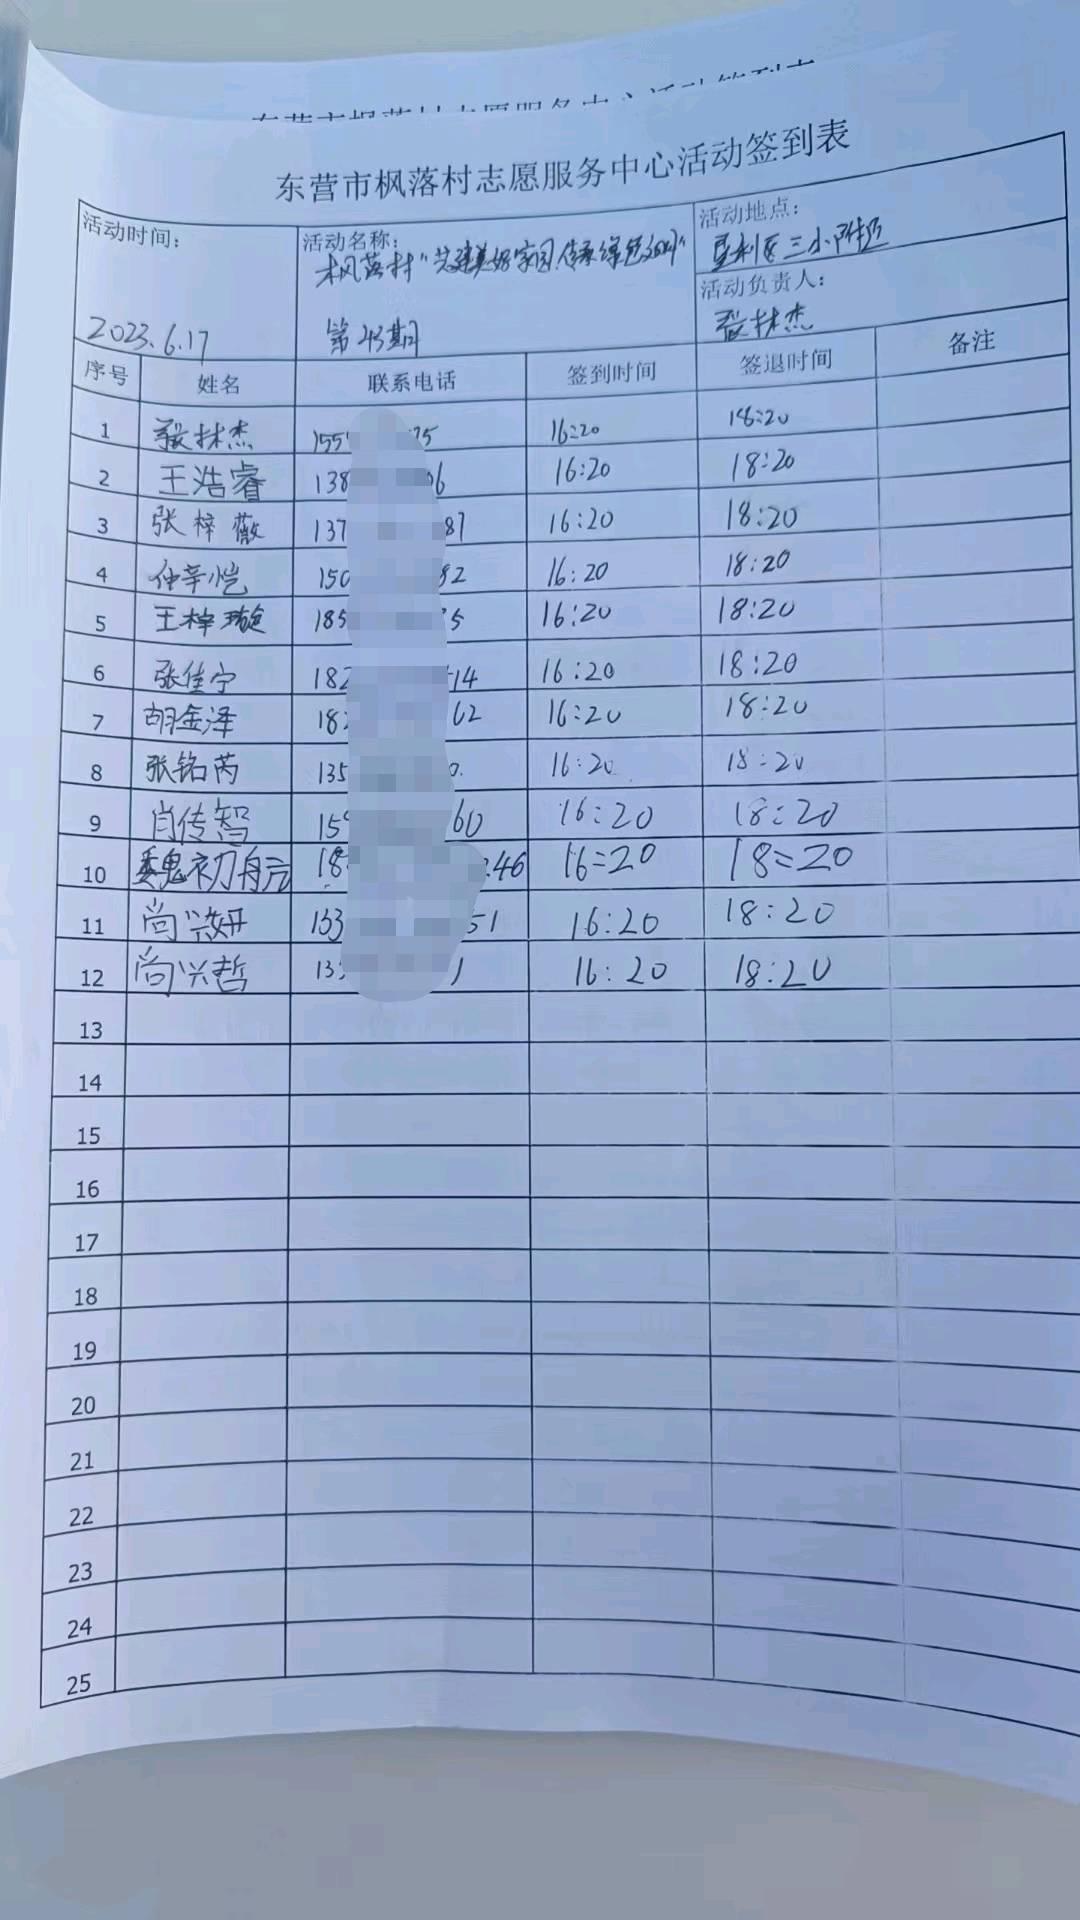 东营市枫落村志愿服务中心活动签到表
活动时间： 活动名称： 活动地点：
枫落村“共建美好家园,传承绿色 垦利区三小附近
活动负责人：
2023.6.17 第43期 林杰
序号 姓名 联系电话 签到时间 签退时间 备注
1 林杰 155 75 16:20 18:20
2 王浩睿 138 06 16:20 18:20
3 张梓薇 137 87 16:20 18:20
4 仲辛恺 150 82 16:20 18:20
5 王梓璇 185 5 16:20 18:20
6 张佳宁 182 14 16:20 18:20
7 胡金泽 18 62 16:20 18:20
8 张铭芮 135 0. 16:20 18:20
9 肖传智 15 60 16:20 18:20
10 魏初舟元 18 46 16:20 18:20
11 尚兴妍 133 51 16:20 18:20
12 尚兴哲 13 1 16:20 18:20
13
14
15
16
17
18
19
20
21
22
23
24
25